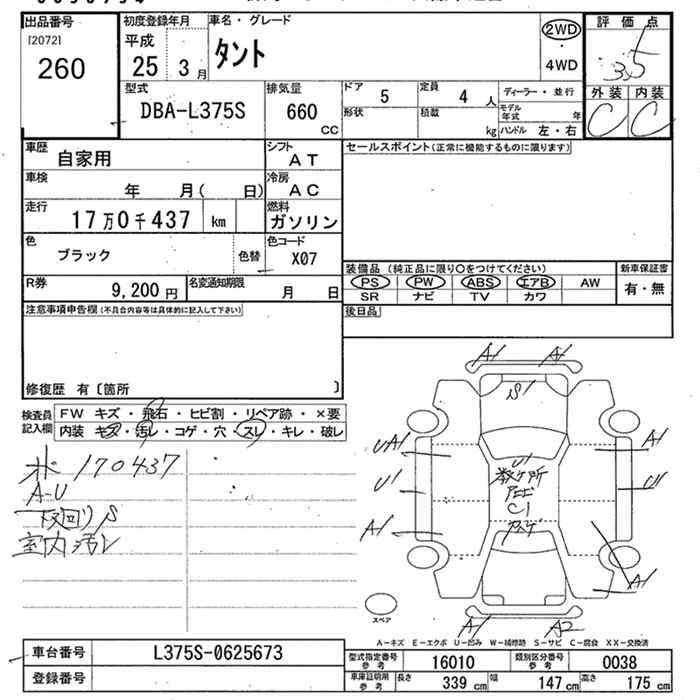 出品番号
[2072]
260
初度登録年月
平成
25 3月
車名・グレード
タント
2WD
・
4WD
評価点
3.5
外装 内装
C C
型式
DBA-L375S
排気量
660
CC
ドア 5
定員 4 人
ディーラー・並行
形状
積載 kg
モデル年式 年
ハンドル 左・右
車歴
自家用
シフト
AT
セールスポイント(正常に機能するものに限ります)
車検
年 月( 日)
冷房
AC
走行
17万0千437 km
燃料
ガソリン
色
ブラック
色替
色コード
X07
装備品 (純正品に限り〇をつけてください)
新車保証書
PS PW ABS エアB AW
有・無
SR ナビ TV カワ
R券
9,200 円
名変通知期限
月 日
後日品
注意事項申告欄(不具合内容等は具体的に記入して下さい)
修復歴 有〔箇所 〕
検査員記入欄
FW キズ・飛石・ヒビ割・リペア跡・×要
内装 キズ・汚レ・コゲ・穴・スレ・キレ・破レ
170437
A-U
下回りS
室内汚レ
A1 A1
S1
UA1
A1
U1
数ヶ所
U1
U1
C1
A1
A1
A1 A2
スペア
A-キズ E-エクボ U-凹み W-補修跡 S-サビ C-腐食 XX-交換済
車台番号
L375S-0625673
登録番号
型式指定番号参考 16010
類別区分番号参考 0038
車庫証明用参考
長さ 339 cm
幅 147 cm
高さ 175 cm